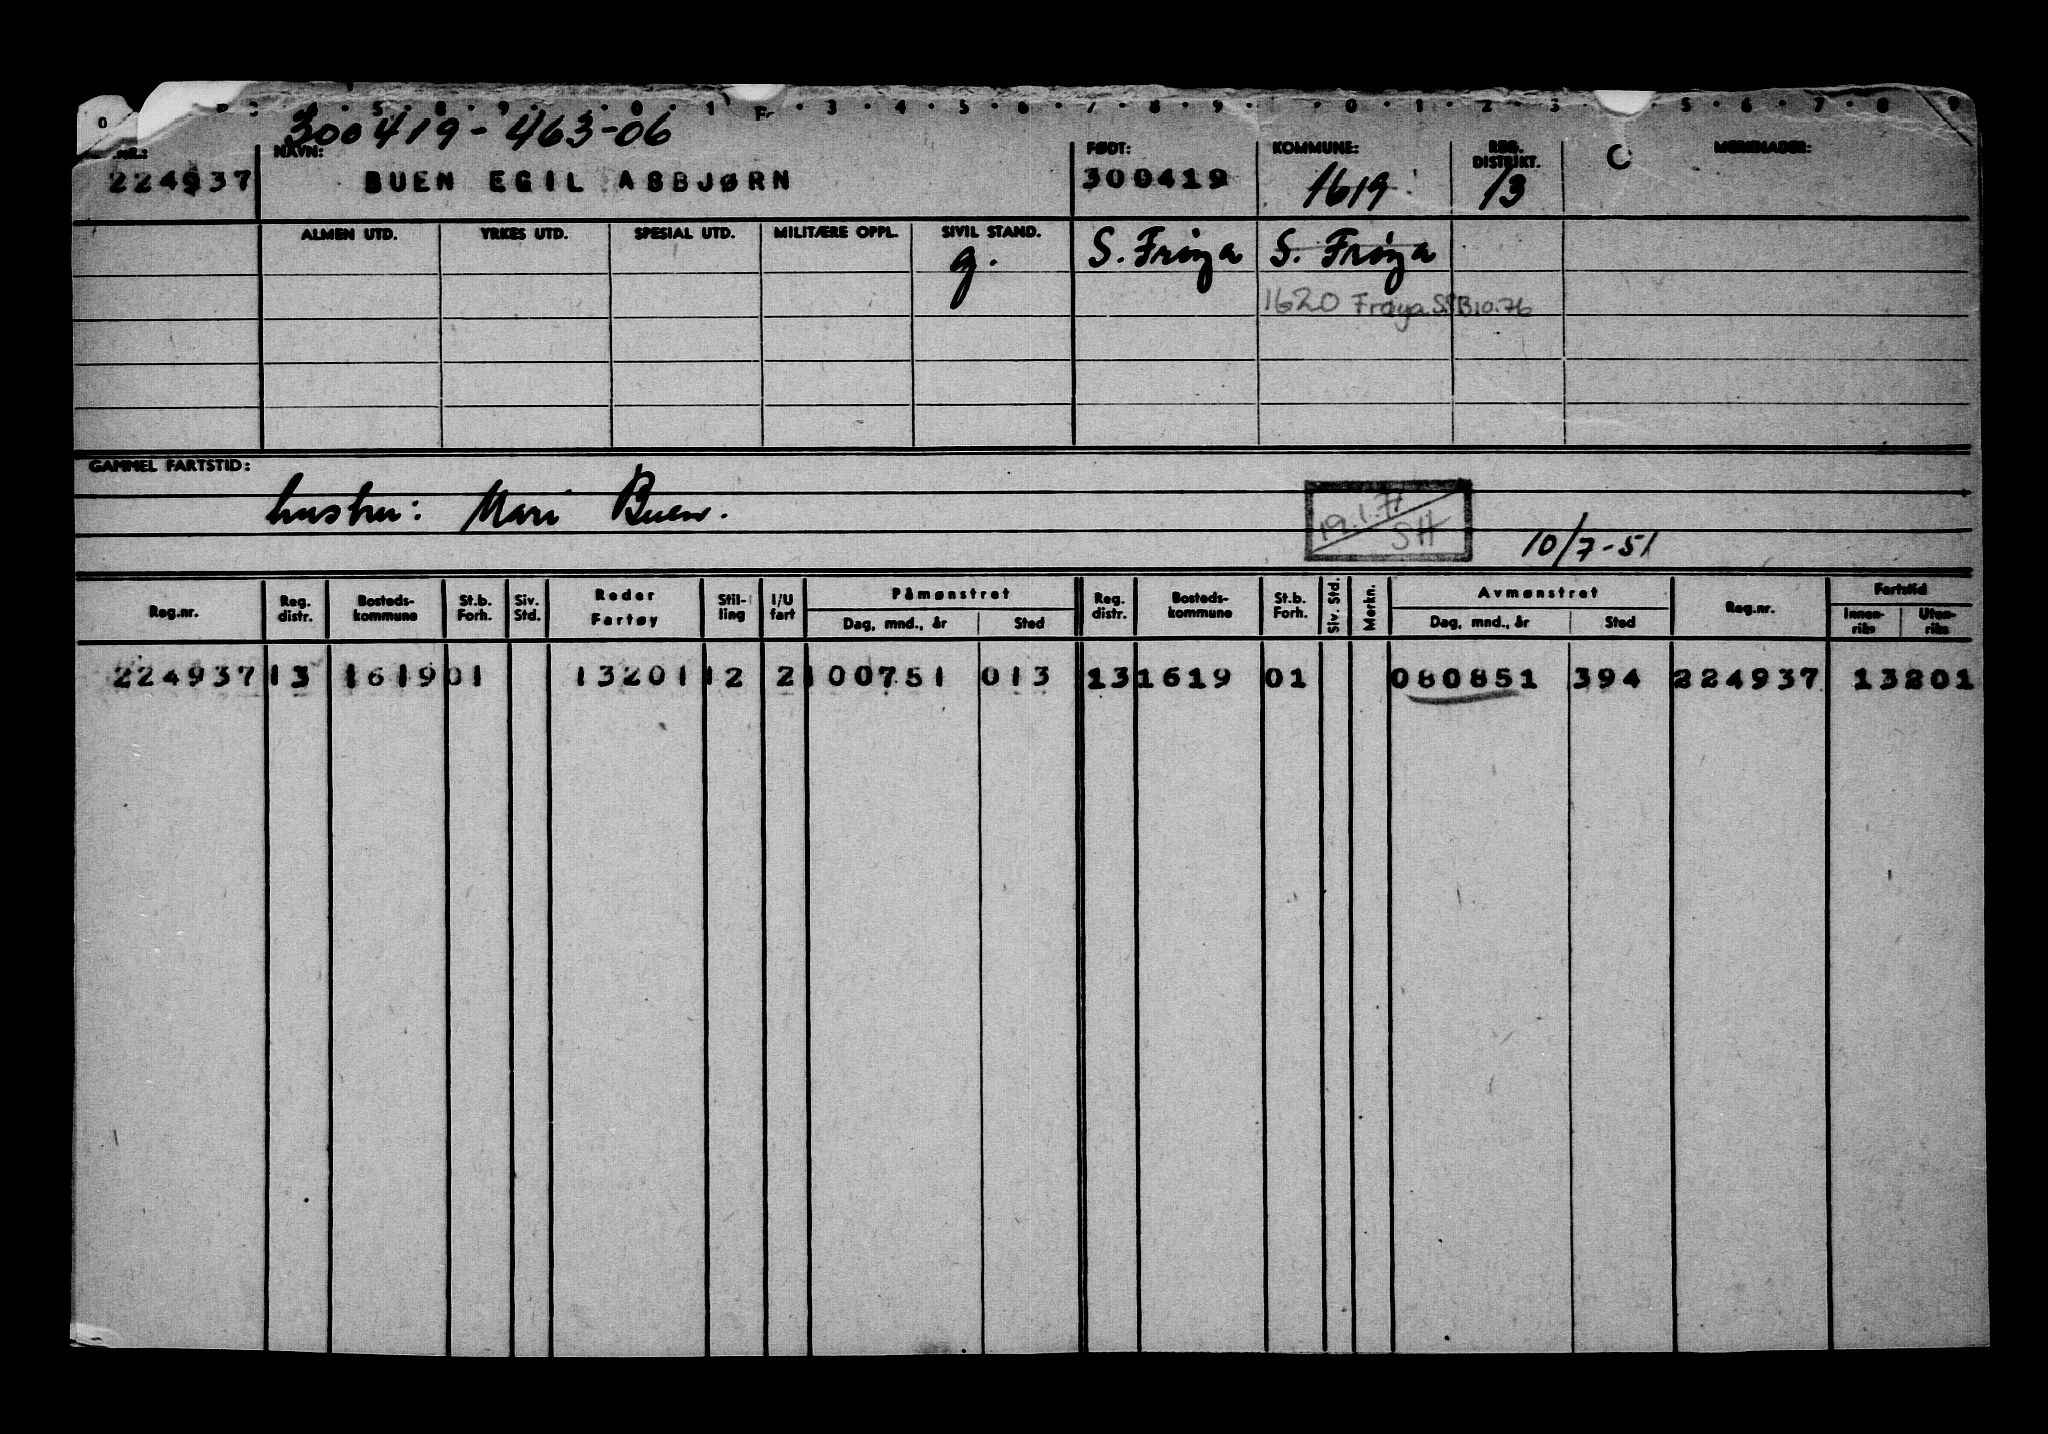 300419-463-06
NR.: NAVN: FØDT: KOMMUNE: REG. DISTRIKT. MERKNADER:
224937 BUEN EGIL ASBJØRN 300419 1619 13
ALMEN UTD. YRKES UTD. SPESIAL UTD. MILITÆRE OPPL. SIVIL STAND.
g. S. Frøya S. Frøya
1620 Frøya 10.76
GAMMEL FARTSTID:
hustru: Mari Buen.
19.1.71
SH
10/7-51
Reg.nr. Reg. distr. Bosteds-kommune St.b. Forh. Siv. Std. Reder Fartøy Stil-ling I/U fart Påmønstret Dag, mnd., år Sted Reg. distr. Bosteds-kommune St.b. Forh. Siv. Std. Merkn. Avmønstret Dag, mnd., år Sted Reg.nr. Fartstid Innen-riks Uten-riks
224937 13 1619 01 13201 12 2 100751 013 13 1619 01 080851 394 224937 13201